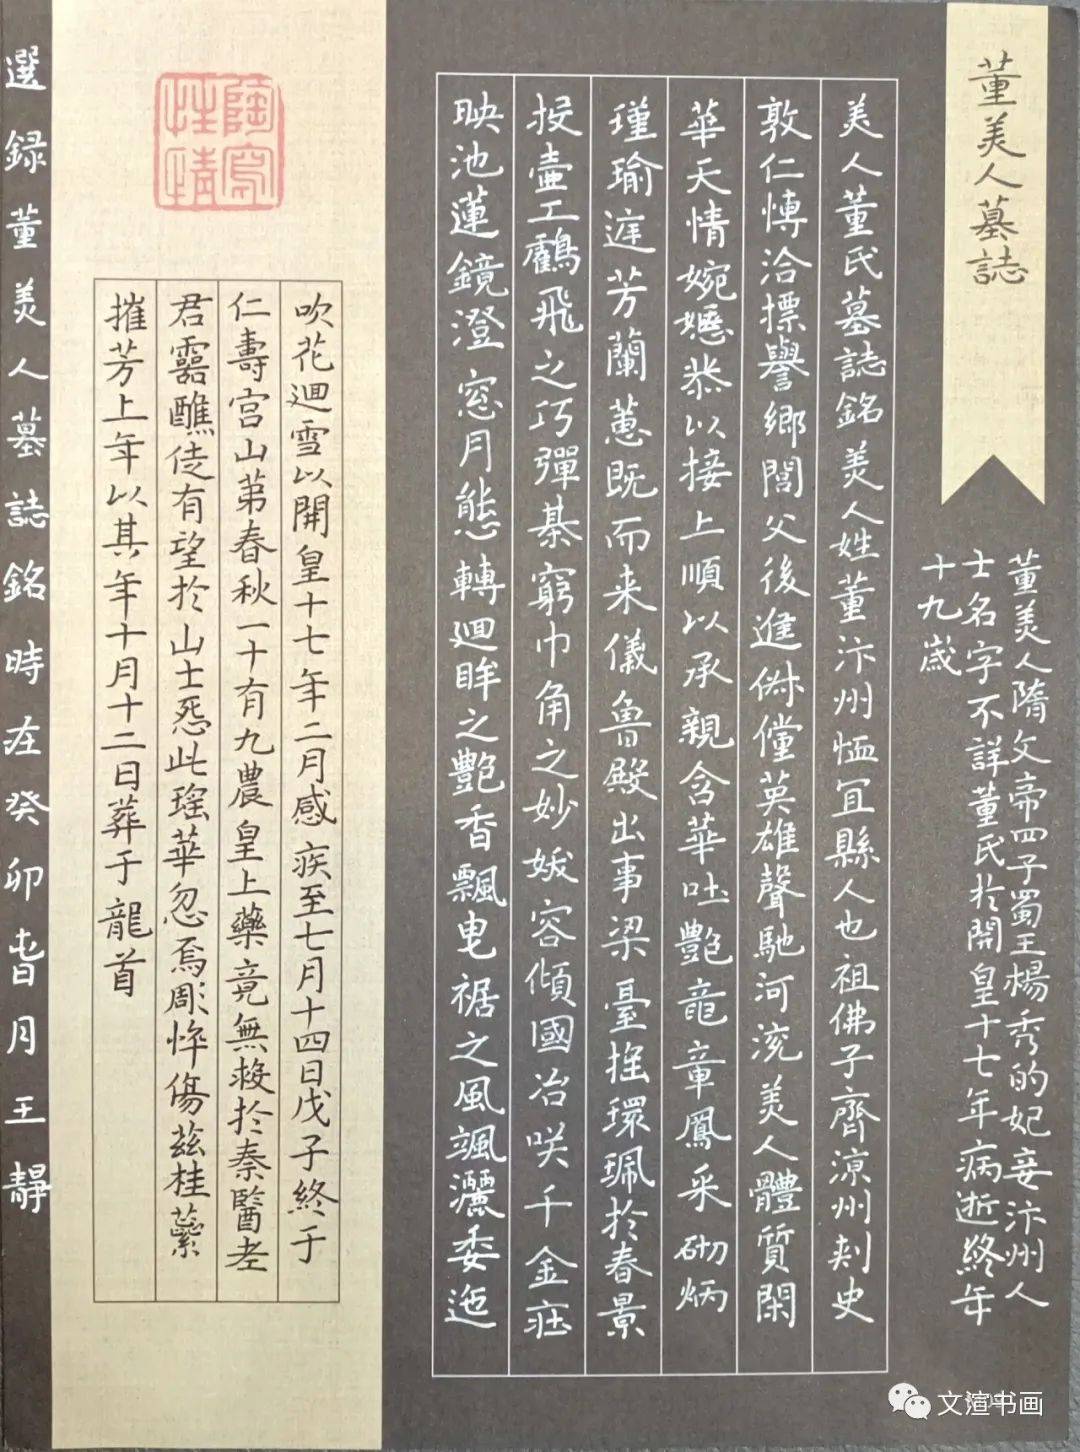 董美人墓誌
董美人隋文帝四子蜀王楊秀的妃妾汴州人
士名字不詳董氏於開皇十七年病逝終年
十九歲
美人董氏墓誌銘美人姓董汴州恤冝縣人也祖佛子齊涼州刺史
敦仁愽洽摽譽鄉閭父後進俶儻英雄聲馳河渷美人體質閑
華天情婉嫕恭以接上順以承親含華吐艷龍章鳳采砌炳
瑾瑜庭芳蘭蕙既而来儀魯殿出事梁臺摇環珮於春景
投壷工鸖飛之巧彈棊窮巾角之妙妖容傾國冶咲千金莊
映池蓮鏡澄窓月態轉廻眸之艷香飄曳裾之風颯灑委迤
陶寫性情
吹花廻雪以開皇十七年二月感疾至七月十四日戊子終于
仁壽宫山第春秋一十有九農皇上藥竟無救於秦醫老
君靈醮徒有望於山士怒此瑤華忽焉彫悴傷兹桂蘂
摧芳上年以其年十月十二日葬于龍首
選録董美人墓誌銘時在癸卯旹月王靜
文渲书画